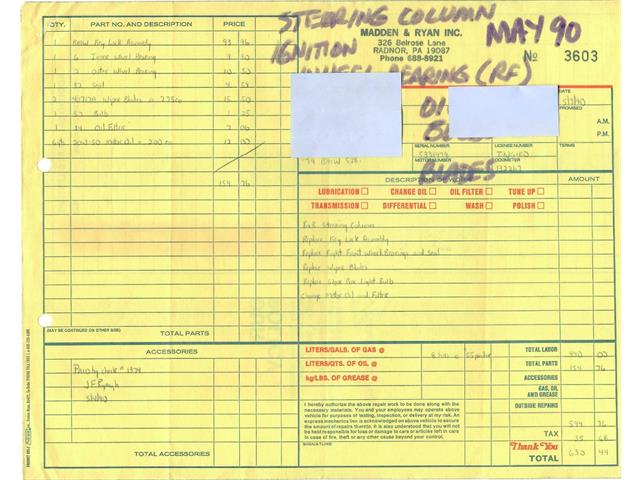 STEERING COLUMN
IGNITION
MAY 90
WHEEL BEARING (RF)
BLADES
MADDEN & RYAN INC.
326 Belrose Lane
RADNOR, PA 19087
Phone 688-8921
No 3603
QTY. PART NO. AND DESCRIPTION PRICE
1 Key Lock Assembly 93 96
1 Inner Wheel Bearing
1 Outer Wheel Bearing 10 50
1 Seal
2 Wiper Blades @ 7.75 15 50
1 57 Bulb 1 25
1 Oil Filter
20W-50 Motor Oil 12 00
154 76
DATE
5/2/90
PROMISED
A.M.
P.M.
SERIAL NUMBER LICENSE NUMBER TERMS
MOTOR NUMBER ODOMETER
79 BMW 528i
DESCRIPTION OF WORK AMOUNT
LUBRICATION CHANGE OIL OIL FILTER TUNE UP
TRANSMISSION DIFFERENTIAL WASH POLISH
R&R Steering Column
Replace Key Lock Assembly
Replace Right Front Wheel Bearings and Seal
Replace Wiper Blades
Replace Glove Box Light Bulb
Change Motor Oil and Filter
(MAY BE CONTINUED ON OTHER SIDE) TOTAL PARTS
ACCESSORIES
Paid by check # 1374
5/2/90
LITERS/GALS. OF GAS @
LITERS/QTS. OF OIL @
kg/LBS. OF GREASE @
8 hrs @ 55 per hr
TOTAL LABOR 440 00
TOTAL PARTS 154 76
ACCESSORIES
GAS, OIL
AND GREASE
OUTSIDE REPAIRS
I hereby authorize the above repair work to be done along with the
necessary materials. You and your employees may operate above
vehicle for purposes of testing, inspection, or delivery at my risk. An
express mechanics lien is acknowledged on above vehicle to secure
the amount of repairs thereto. It is also understood that you will not
be held responsible for loss or damage to cars or articles left in cars
in case of fire, theft or any other cause beyond your control.
SIGNATURE
594 76
TAX 35 68
Thank You
TOTAL 630 44